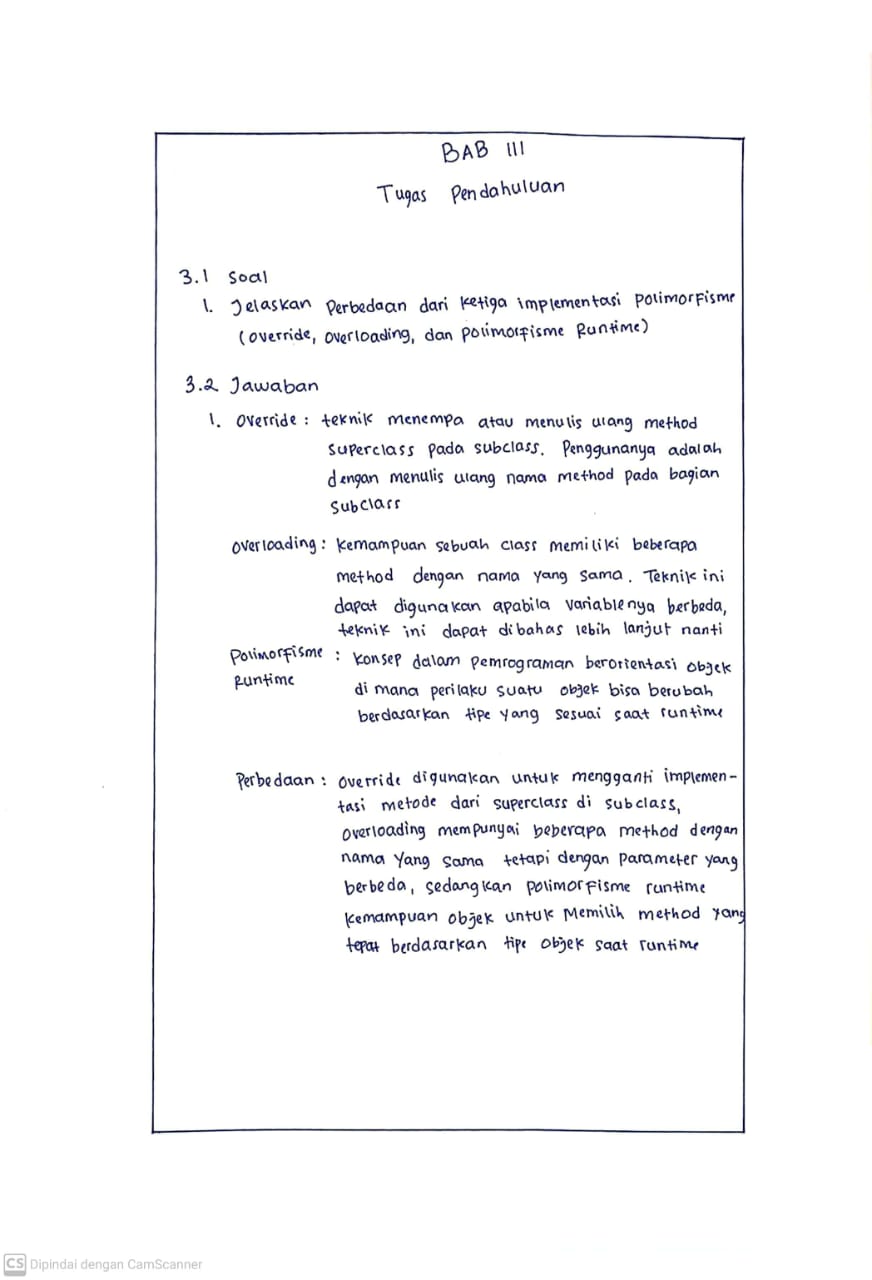 BAB III
Tugas Pendahuluan
3.1 Soal
1. Jelaskan Perbedaan dari ketiga implementasi Polimorfisme
(override, overloading, dan polimorfisme Runtime)
3.2 Jawaban
1. Override : teknik menempa atau menulis ulang method
superclass pada subclass. Penggunanya adalah
dengan menulis ulang nama method pada bagian
Subclass
Overloading : Kemampuan sebuah class memiliki beberapa
method dengan nama yang sama. Teknik ini
dapat digunakan apabila variablenya berbeda,
teknik ini dapat dibahas lebih lanjut nanti
Polimorfisme : Konsep dalam pemrograman berorientasi objek
Runtime di mana perilaku suatu objek bisa berubah
berdasarkan tipe yang sesuai saat runtime
Perbedaan : Override digunakan untuk mengganti implemen-
tasi metode dari superclass di subclass,
overloading mempunyai beberapa method dengan
nama yang sama tetapi dengan parameter yang
berbeda, sedangkan polimorfisme runtime
kemampuan objek untuk Memilih method yang
tepat berdasarkan tipe objek saat runtime
CS Dipindai dengan CamScanner